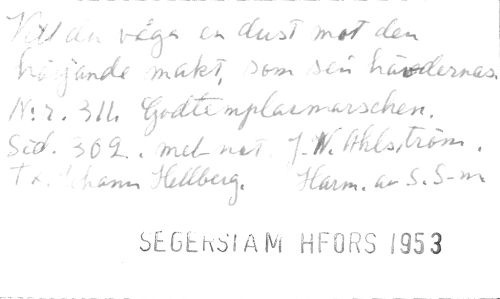 Vill du våga en dust mot den
härjande makt, som sen hävdernas
N:r. 311. Godtemplarmarschen.
Sid. 302. mel. not. J. N. Ahlström.
Tx. Johann Hellberg. Harm. av S. S-m
SEGERSTAM HFORS 1953